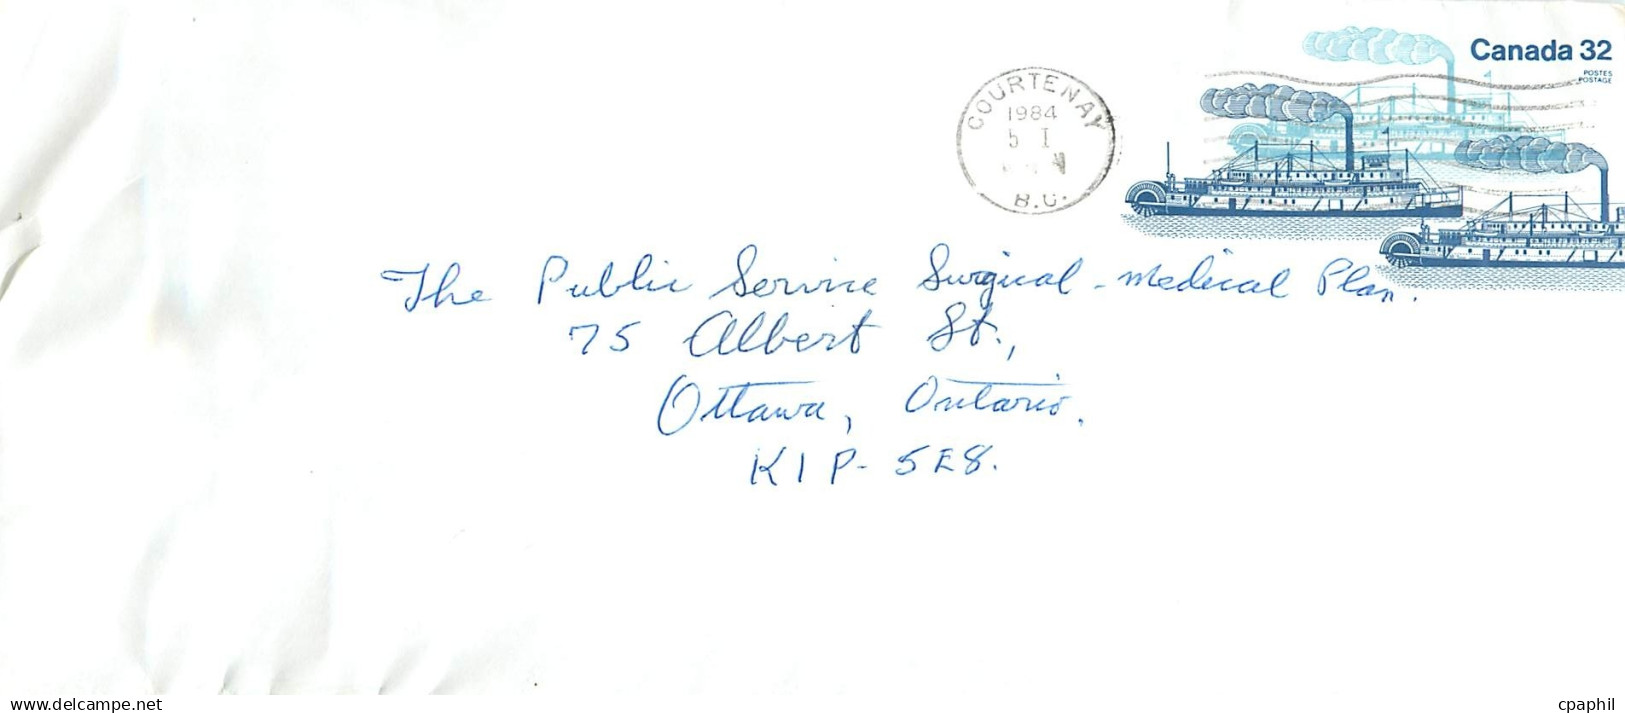 Canada 32
POSTES
POSTAGE
COURTENAY
1984
5 I
B.C.
The Public Service Surgical-Medical Plan.
75 Albert St.,
Ottawa, Ontario.
K1P-5E8.
delcampe.net
cpaphil